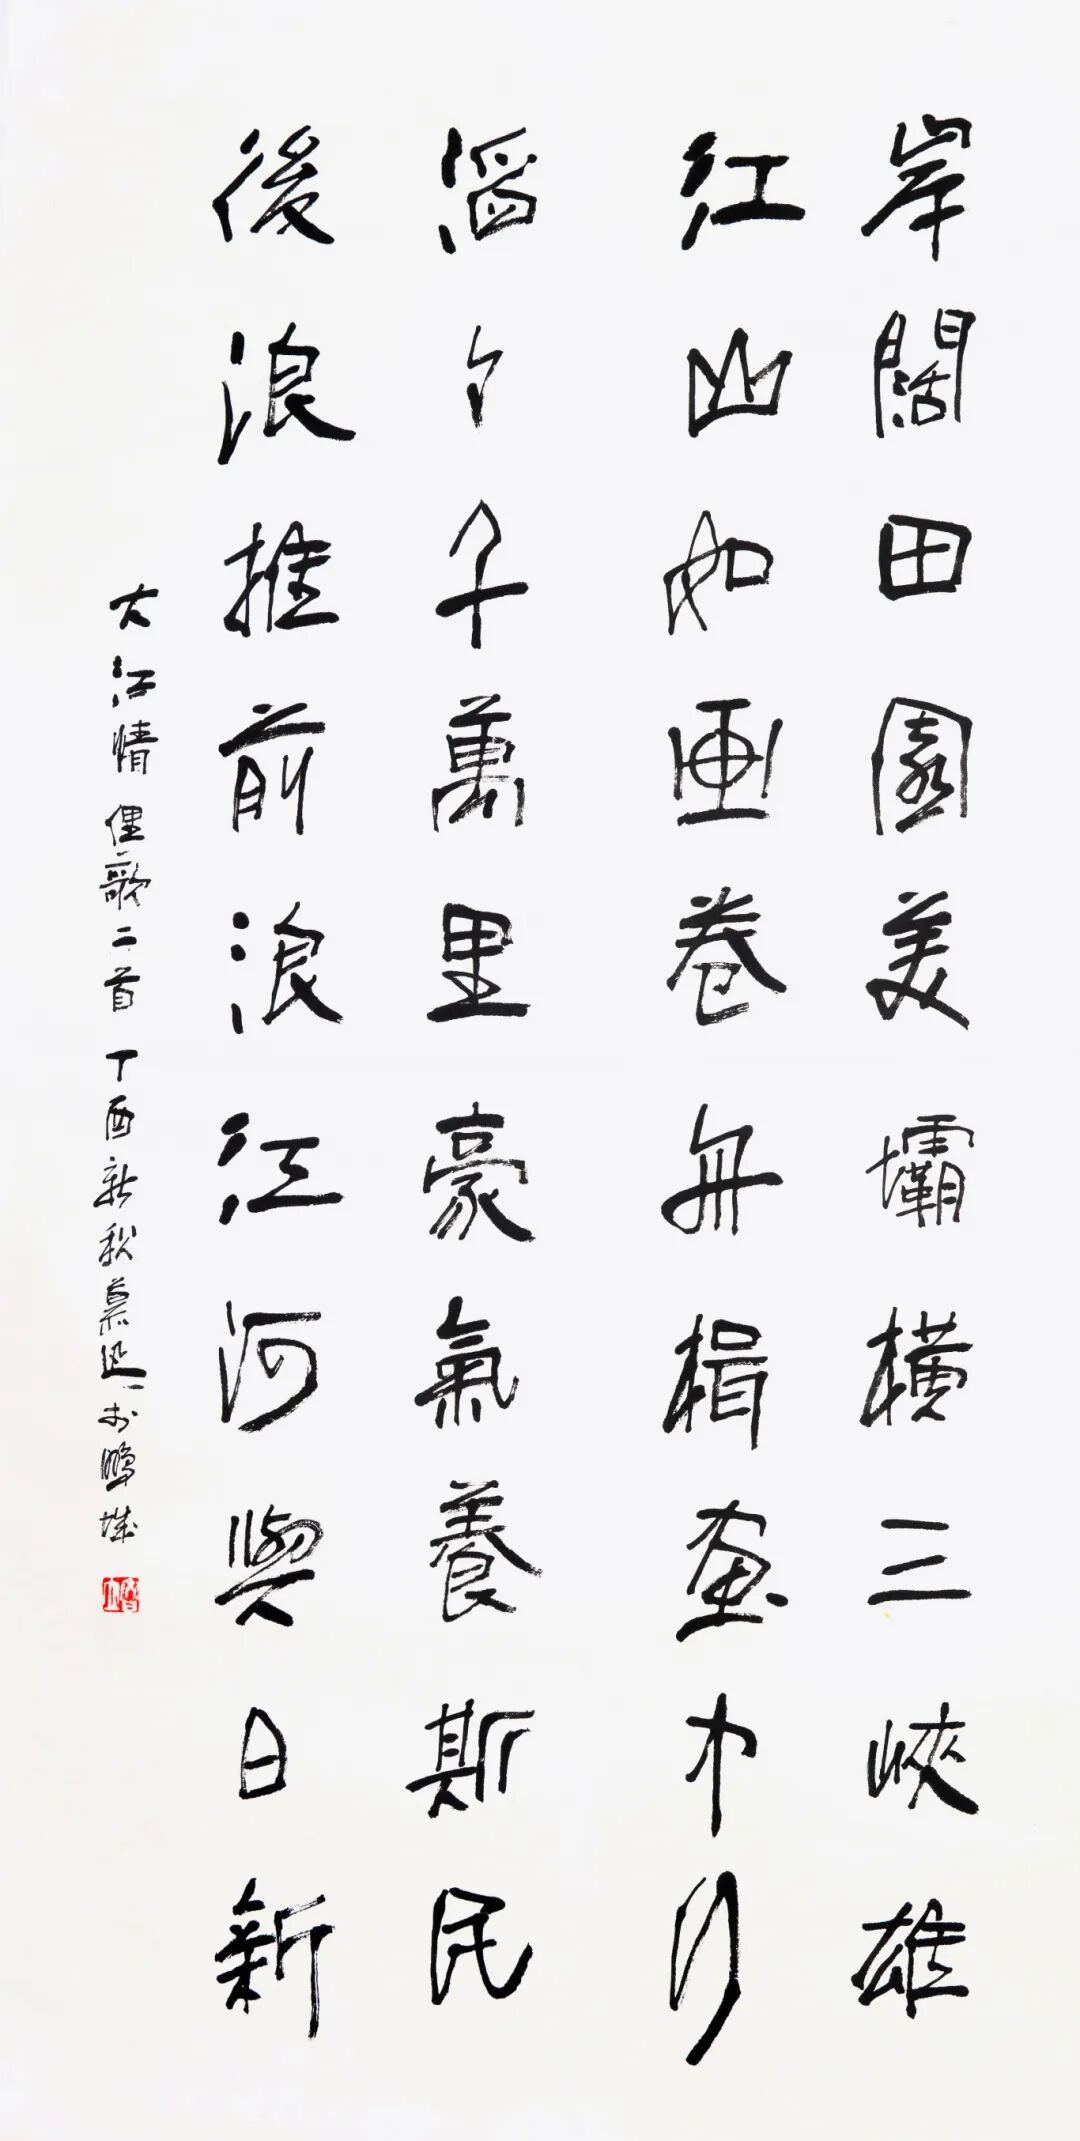 岸闊田園美壩橫三峽雄
江山如画卷舟楫畫中行
滔々千萬里豪氣養斯民
後浪推前浪江河與日新
大江情俚歌二首 丁酉新秋慕於鵬城